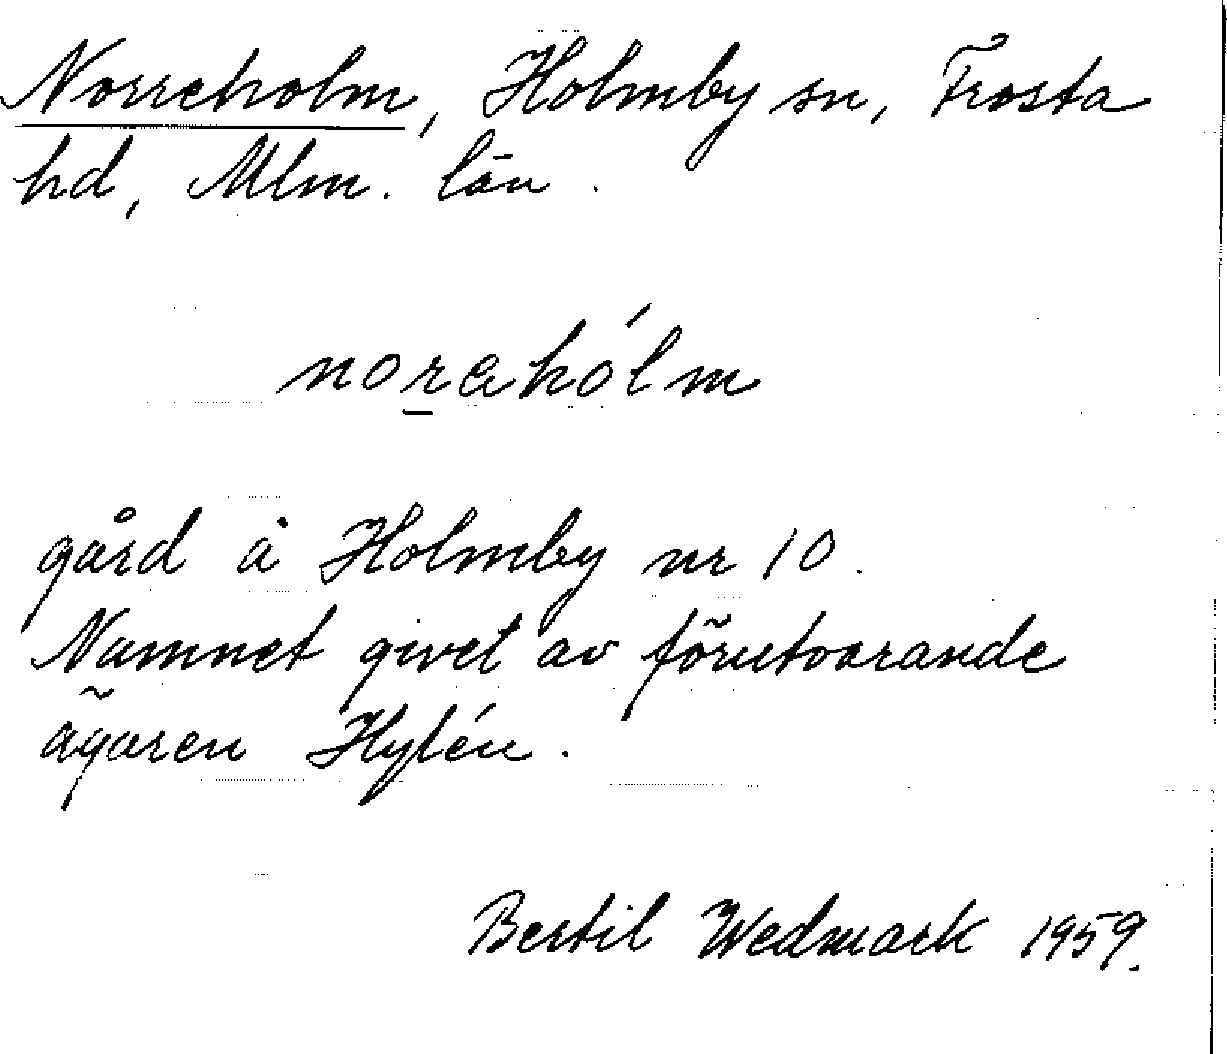 Norreholm, Holmby sn, Frosta
hd, Mlm. län.
norəhólm
gård å Holmby nr 10.
Namnet givet av förutvarande
ägaren Hylén.
Bertil Wedmark 1959.